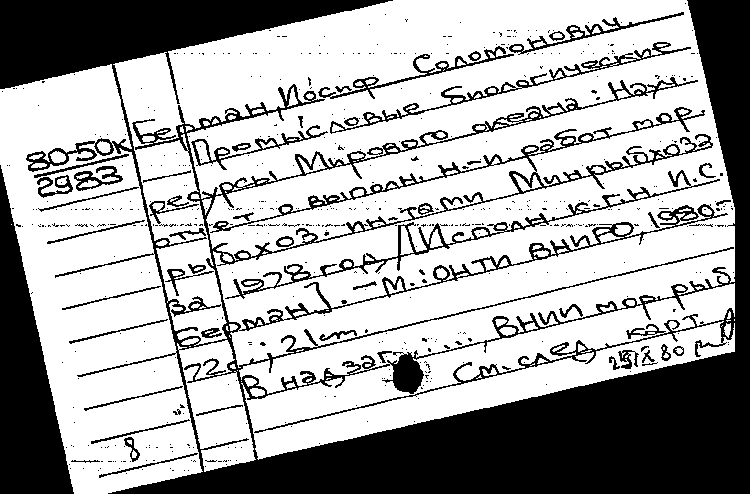 Берман, Иосиф Соломонович.
80-50к
2983
Промысловые биологические
ресурсы Мирового океана: Науч.
отчет о выполн. н.-и. работ мор.
рыбохоз. ин-тами Минрыбхоза
за 1978 год / [Исполн. к.г.н. И.С.
Берман]. - М.: ОНТИ ВНИРО, 1980.-
72 с.; 21 см.
В надзаг.: ..., ВНИИ мор. рыб.
См. след. карт.
8